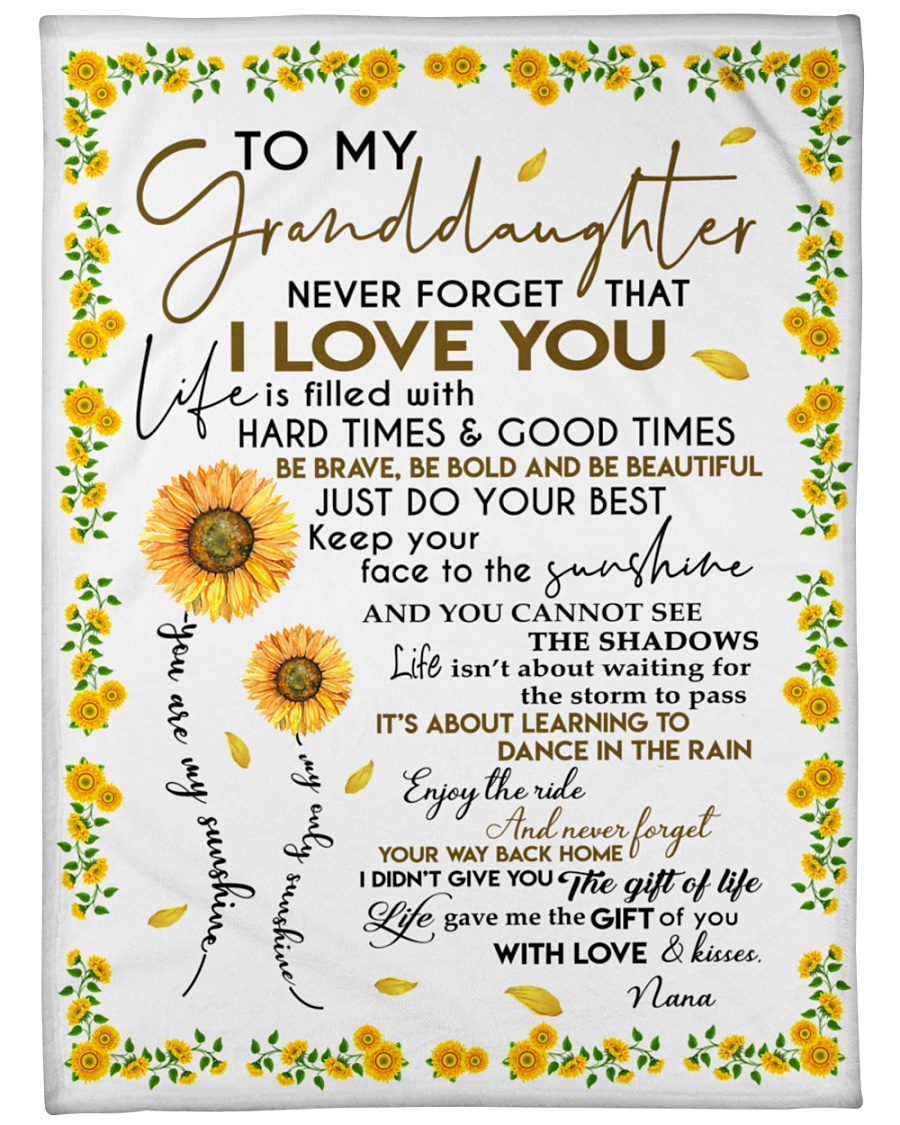 TO MY
Granddaughter
NEVER FORGET THAT
I LOVE YOU
Life is filled with
HARD TIMES & GOOD TIMES
BE BRAVE, BE BOLD AND BE BEAUTIFUL
JUST DO YOUR BEST
Keep your
face to the sunshine
AND YOU CANNOT SEE
THE SHADOWS
Life isn't about waiting for
the storm to pass
IT'S ABOUT LEARNING TO
DANCE IN THE RAIN
Enjoy the ride
And never forget
YOUR WAY BACK HOME
I DIDN'T GIVE YOU The gift of life
Life gave me the GIFT of you
WITH LOVE & kisses,
Nana
you are my sunshine
my only sunshine